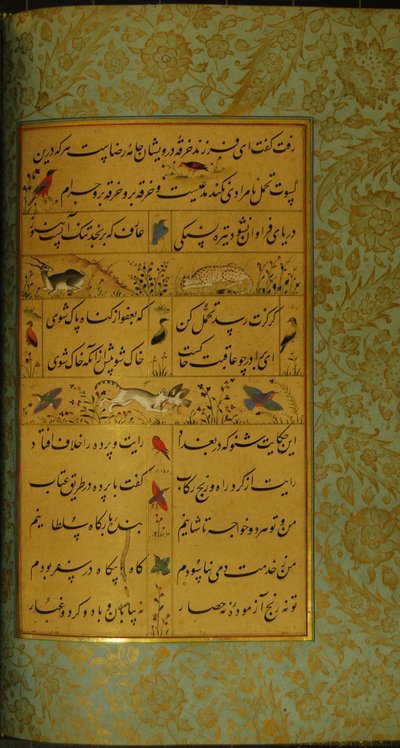 رفت گفت ای فرزند خرقه درویشان جامه رضاست هر که درین
کسوت تحمل نامرادی نکند مدعیست و خرقه برو حرام
دریای فراوان نشود تیره بسنگی
عارف که برنجد تنک آبست هنوز
گر گزندت رسد تحمل کن
که بعفو از گناه پاک شوی
ای برادر چو عاقبت خاکست
خاک شو پیش از آنکه خاک شوی
این حکایت شنو که در بغداد
رایت و پرده را خلاف افتاد
رایت از گرد راه و رنج رکاب
گفت با پرده در طریق عتاب
من و تو هر دو خواجه تاشانیم
بنده بارگاه سلطانیم
من ز خدمت دمی نیاسودم
گاه و بیگاه در سفر بودم
تو نه رنج آزموده نه حصار
نه بیابان و باد و گرد و غبار